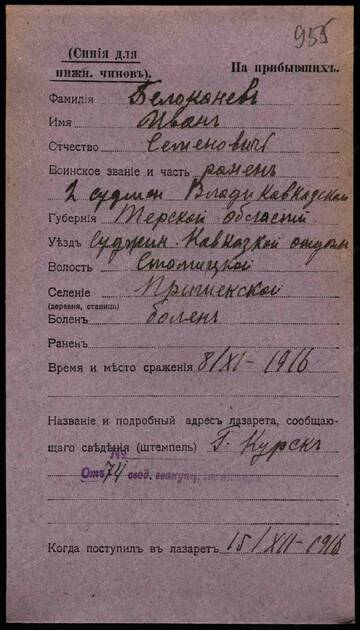 955
(Синія для
нижн. чиновъ).
На прибывшихъ.
Фамилія Белоконевъ
Имя Иванъ
Отчество Семеновичъ
Воинское званіе и часть раненъ
2 Владикавказской
Губернія Терской области
Уѣздъ
Волость
Селеніе
(деревня, станица)
Боленъ боленъ
Раненъ
Время и мѣсто сраженія 8/XI - 1916
Названіе и подробный адресъ лазарета, сообщаю-
щаго свѣдѣнія (штемпель) Г. Курскъ
№
Отъ 74 свод. эвакуац.
Когда поступилъ въ лазаретъ 15/XII - 1916